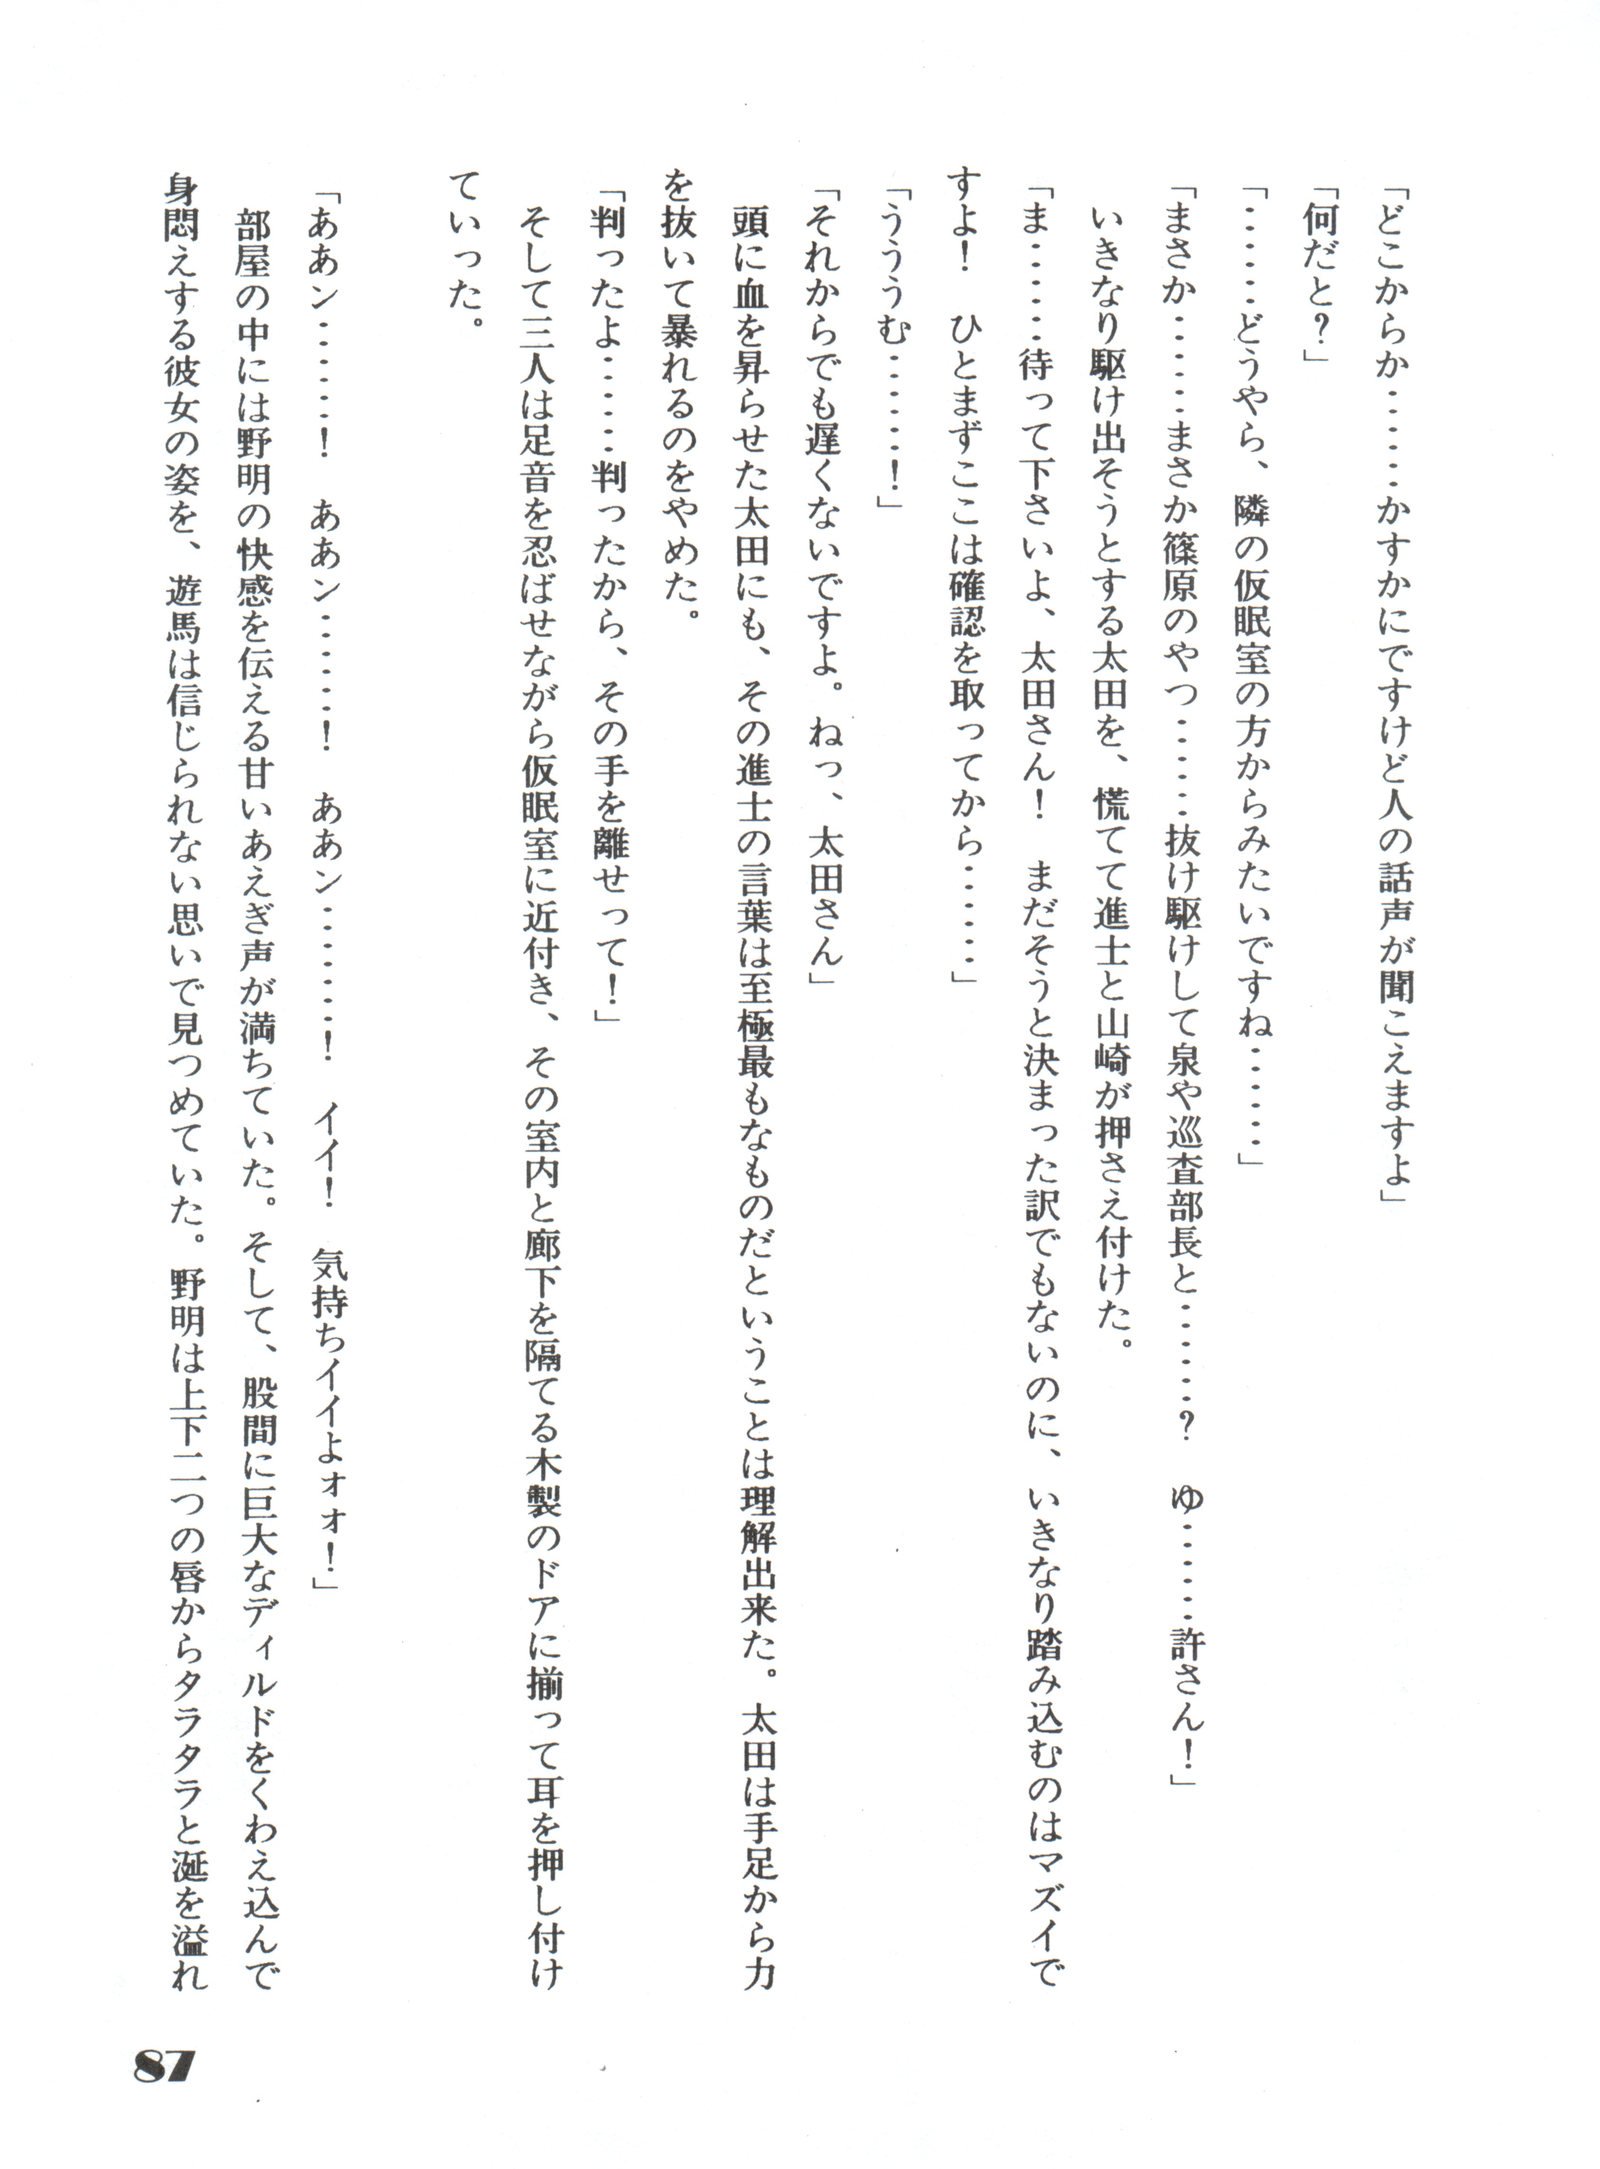 「どこからか……かすかにですけど人の話声が聞こえますよ」
「何だと?」
「……どうやら、隣の仮眠室の方からみたいですね……」
「まさか……まさか篠原のやつ……抜け駆けして泉や巡査部長と……? ゆ……許さん!」
いきなり駆け出そうとする太田を、慌てて進士と山崎が押さえ付けた。
「ま……待って下さいよ、太田さん! まだそうと決まった訳でもないのに、いきなり踏み込むのはマズイで
すよ! ひとまずここは確認を取ってから……」
「ううむ……!」
「それからでも遅くないですよ。ねっ、太田さん」
頭に血を昇らせた太田にも、その進士の言葉は至極最もなものだということは理解出来た。太田は手足から力
を抜いて暴れるのをやめた。
「判ったよ……判ったから、その手を離せって!」
そして三人は足音を忍ばせながら仮眠室に近付き、その室内と廊下を隔てる木製のドアに揃って耳を押し付け
ていった。
「ああン……! ああン……! ああン……! イイ! 気持ちイイよォォ!」
部屋の中には野明の快感を伝える甘いあえぎ声が満ちていた。そして、股間に巨大なディルドをくわえ込んで
身悶えする彼女の姿を、遊馬は信じられない思いで見つめていた。野明は上下二つの唇からタラタラと涎を溢れ
87